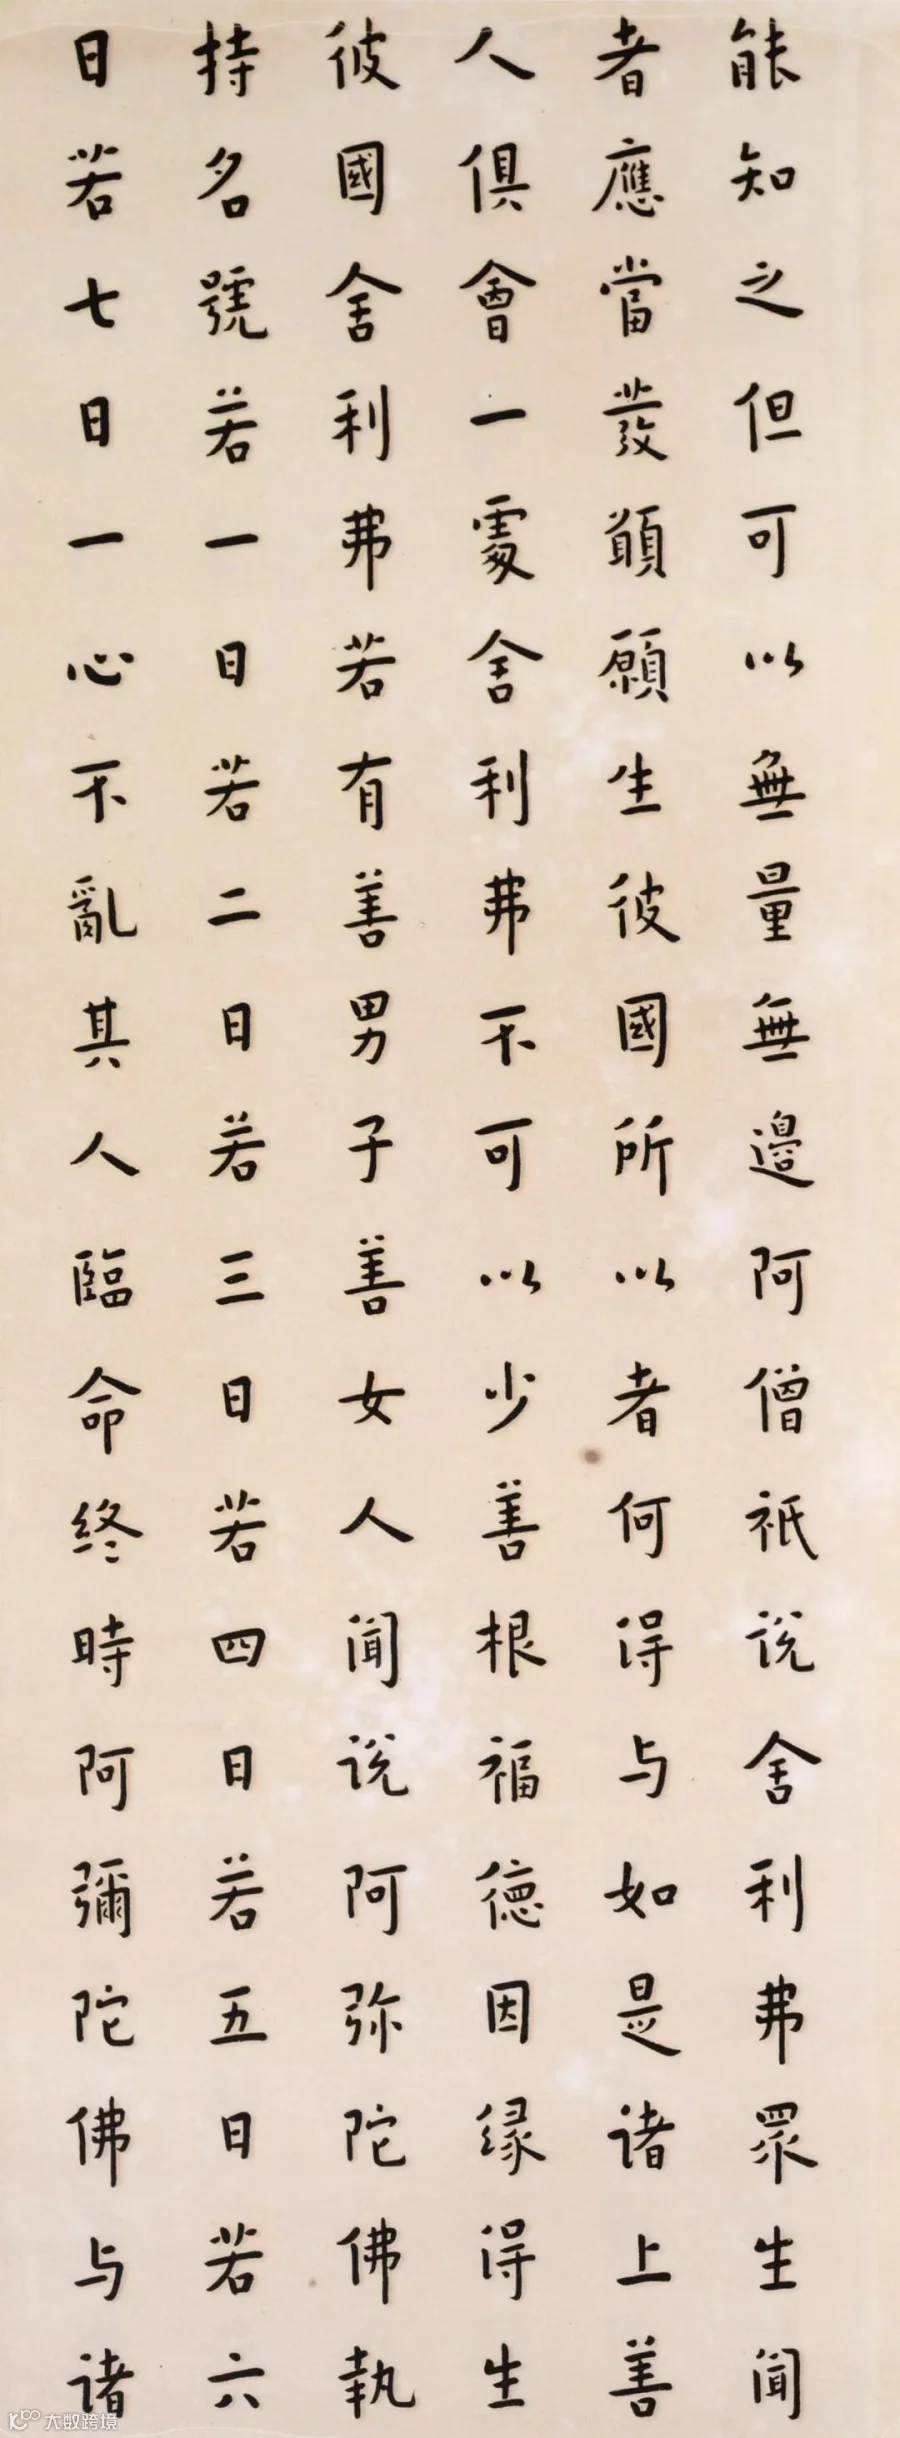 能知之但可以無量無邊阿僧祇説舍利弗眾生聞
者應當發願願生彼國所以者何得与如是諸上善
人俱會一處舍利弗不可以少善根福德因緣得生
彼國舍利弗若有善男子善女人聞説阿弥陀佛執
持名號若一日若二日若三日若四日若五日若六
日若七日一心不亂其人臨命終時阿彌陀佛与諸
大数跨境